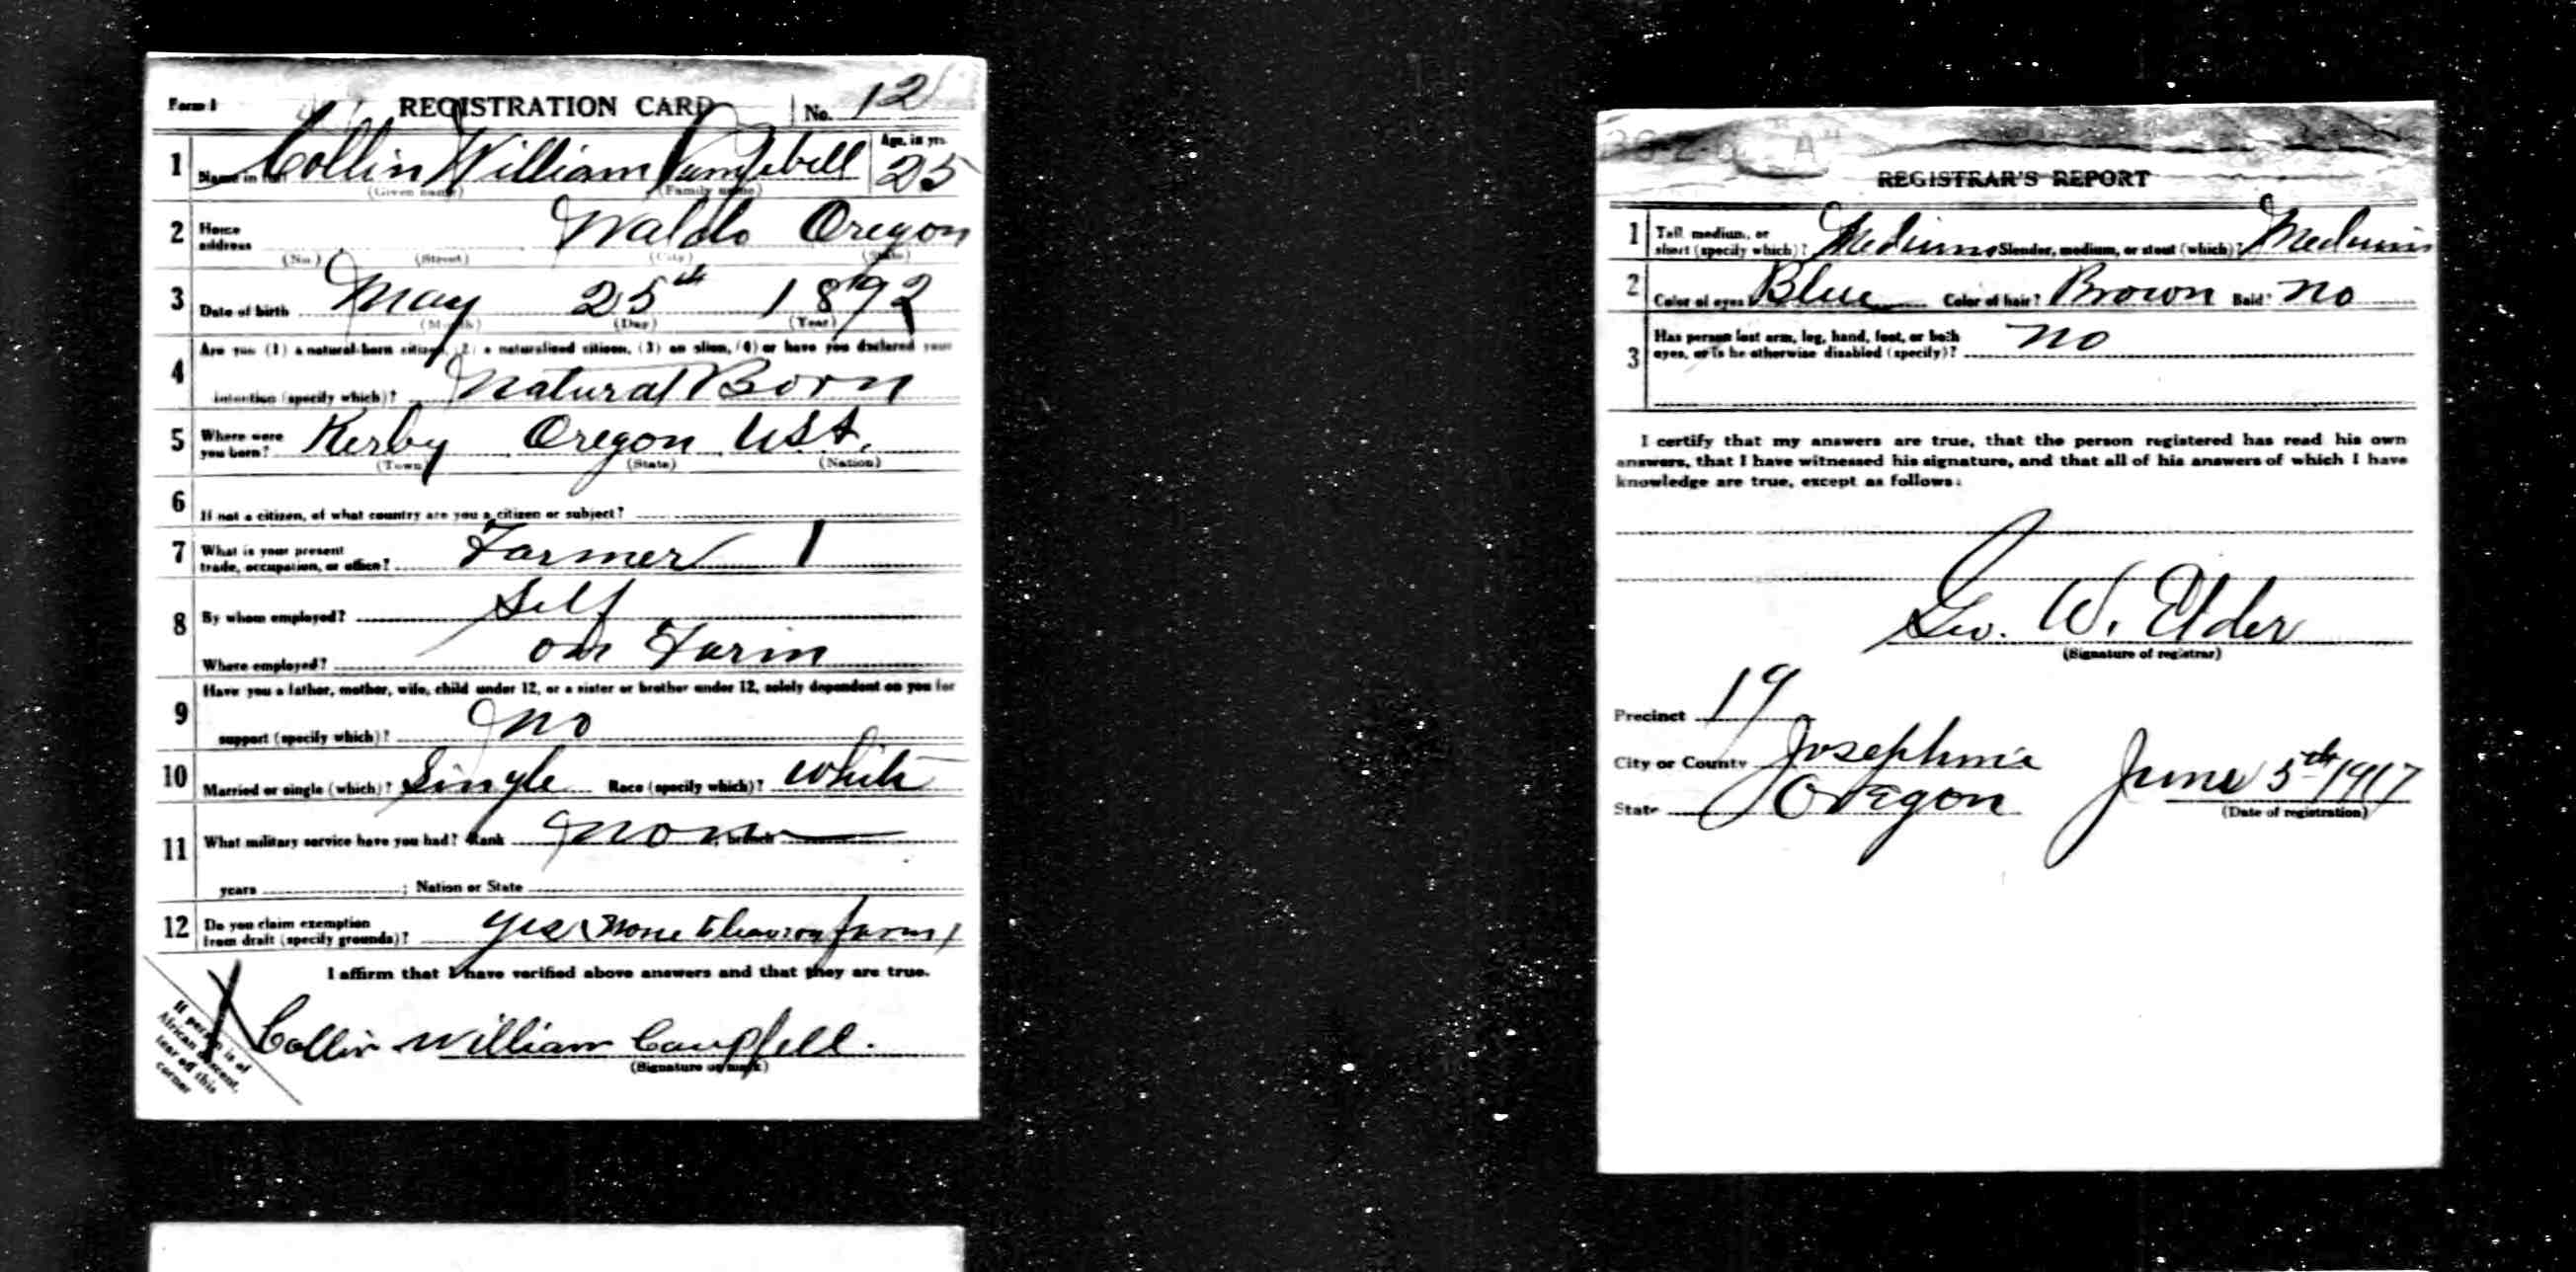 Form 1 REGISTRATION CARD No. 12
1 Name in full Collin William Campbell Age, in yrs. 25
(Given name) (Family name)
2 Home address Waldo Oregon
(No.) (Street) (City) (State)
3 Date of birth May 25th 1892
(Month) (Day) (Year)
4 Are you (1) a natural-born citizen, (2) a naturalized citizen, (3) an alien, (4) or have you declared your
intention (specify which)? Natural Born
5 Where were you born? Kerby Oregon USA.
(Town) (State) (Nation)
6 If not a citizen, of what country are you a citizen or subject?
7 What is your present trade, occupation, or office? Farmer 1
8 By whom employed? Self
Where employed? on Farm
9 Have you a father, mother, wife, child under 12, or a sister or brother under 12, solely dependent on you for
support (specify which)? No
10 Married or single (which)? Single Race (specify which)? White
11 What military service have you had? Rank None branch
years ; Nation or State
12 Do you claim exemption from draft (specify grounds)? Yes None to leave on farm
I affirm that I have verified above answers and that they are true.
Collin William Campbell.
(Signature or mark)
If person is of
African descent,
tear off this
corner
"A"
REGISTRAR'S REPORT
1 Tall, medium, or short (specify which)? Medium Slender, medium, or stout (which)? Medium
2 Color of eyes? Blue Color of hair? Brown Bald? No
3 Has person lost arm, leg, hand, foot, or both
eyes, or is he otherwise disabled (specify)? No
I certify that my answers are true, that the person registered has read his own
answers, that I have witnessed his signature, and that all of his answers of which I have
knowledge are true, except as follows:
Geo. W. Elder
(Signature of registrar)
Precinct 19
City or County Josephine
State Oregon
June 5th 1917
(Date of registration)